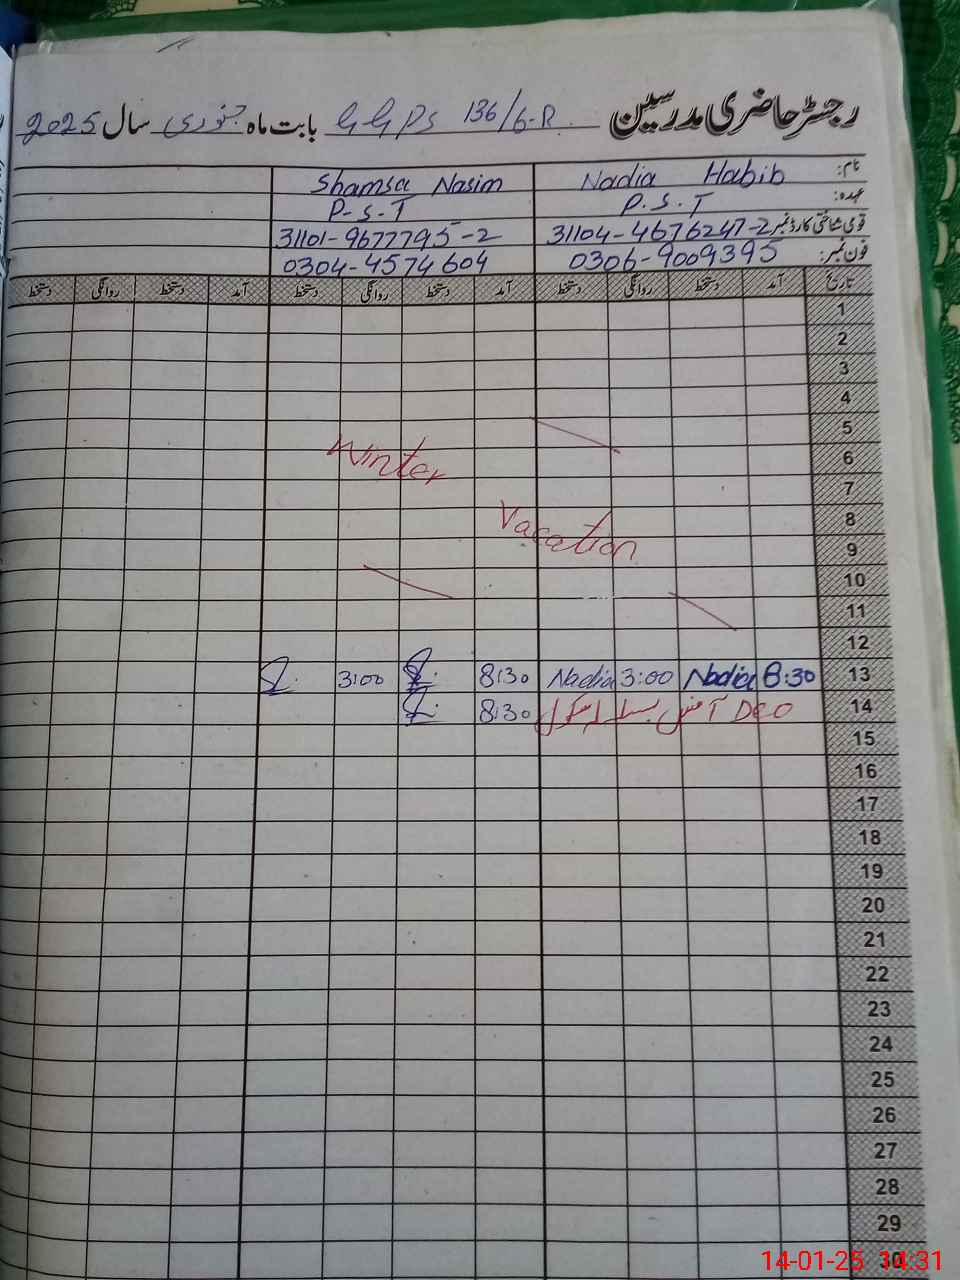 رجسٹر حاضری مدرسین GGPS 136/6-R بابت ماہ جنوری سال 2025
نام: Nadia Habib Shamsa Nasim
عہدہ: P.S.T P-S-T
قومی شناختی کارڈ نمبر 31104-4676247-2 31101-9677795-2
فون نمبر: 0306-9009395 0304-4574604
تاریخ آمد دستخط روانگی دستخط آمد دستخط روانگی دستخط آمد دستخط روانگی دستخط
1
2
3
4
5
6 Winter
7
8 Vacation
9
10
11
12
13 8:30 Nadia 3:00 Nadia 8:30 3:00
14 DEO آفس بسلسلہ سکول 8:30
15
16
17
18
19
20
21
22
23
24
25
26
27
28
29
30
14-01-25 14:31